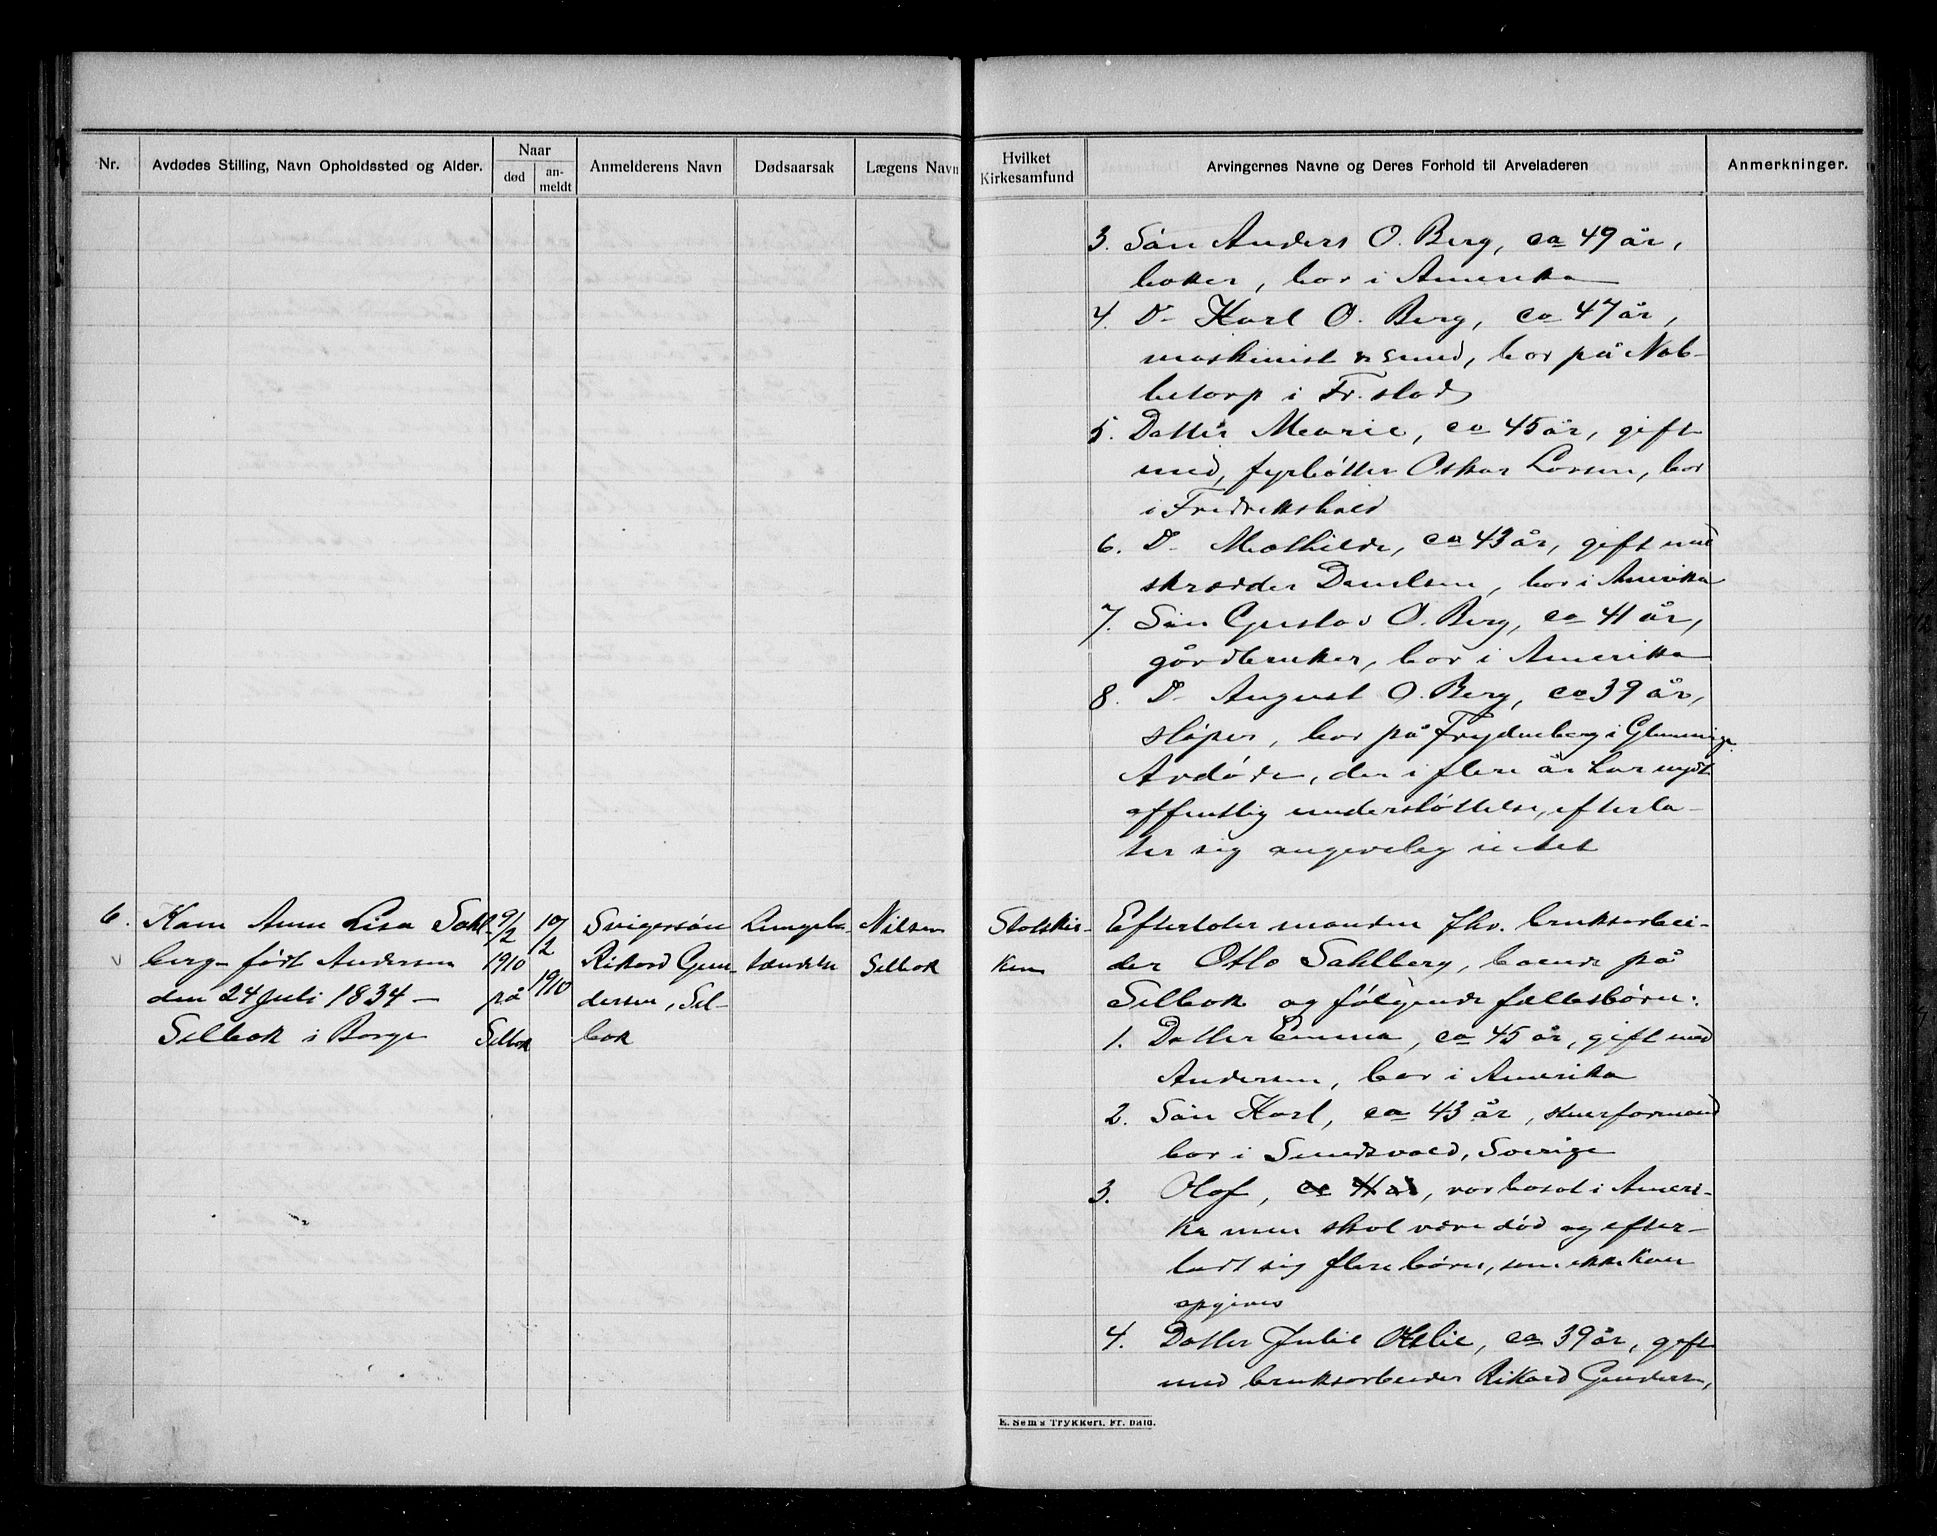 Nr. Avdødes Stilling, Navn Opholdssted og Alder. Naar Anmelderens Navn Dødsaarsak Lægens Navn Hvilket Arvingernes Navne og Deres Forhold til Arveladeren Anmerkninger.
død an-meldt Kirkesamfund
3. Søn Anders O. Berg, ca 49 år,
baker, bor i Amerika
4. Do Karl O. Berg, ca 47 år,
maskinist & smed, bor på Nab-
betorp i Fr.stad
5. Datter Marie, ca 45 år, gift
med fyrbøter Oskar Larsen, bor
i Fredrikshald
6. Do Mathilde, ca 43 år, gift med
skrædder Danielsen, bor i Amerika
7. Søn Gustav O. Berg, ca 41 år,
gårdbruker, bor i Amerika
8. Do August O. Berg, ca 39 år,
sliper, bor på Frydenberg i Glemminge.
Avdøde, der i flere år har nydt
offentlig understøttelse, efterla-
ter sig angivelig intet
6. Kone Anne Lisa Sahl-
berg født Andersen
den 24 Juli 1834 –
Selbak i Borge
9/2
1910
på
Selbak
10/2
1910
Svigersøn
Rikard Gun-
dersen, Sel-
bak
Lungebe-
tændelse
Nilsen
Selbak
Statskir-
ken
Efterlater manden fhv. bruksarbei-
der Otto Sahlberg, boende på
Selbak og følgende fællesbørn:
1. Datter Emma, ca 45 år, gift med
Andersen, bor i Amerika
2. Søn Karl, ca 43 år, skurformand
bor i Sundsvald, Sverige
3. Olof, ca 41 år, var bosat i Ameri-
ka men skal være død og efter-
ladt sig flere børn, som ikke kan
opgives
4. Datter Julie Otelie, ca 39 år, gift
med bruksarbeider Rikard Gundersen,
E. Sem's Trykkeri, Fr. hald.